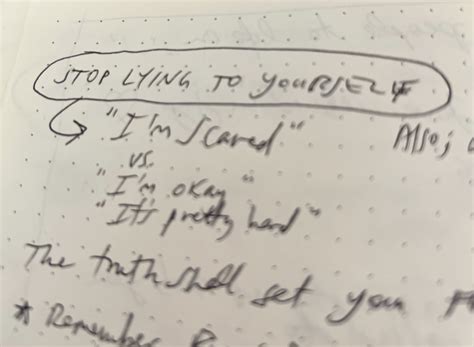 STOP LYING TO YOURSELF
"I'm scared"
Also;
vs.
"I'm okay"
"It's pretty hard"
The truth shall set your
* Remember